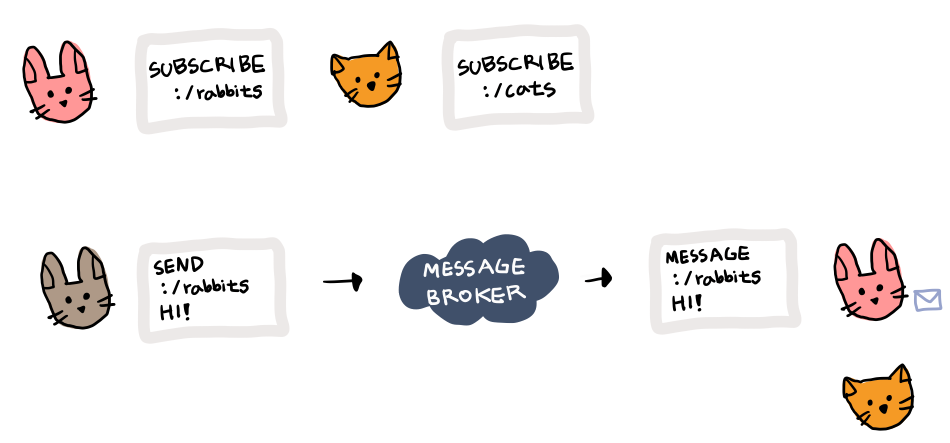 SUBSCRIBE
:/rabbits
SUBSCRIBE
:/cats
SEND
:/rabbits
HI!
MESSAGE
BROKER
MESSAGE
:/rabbits
HI!